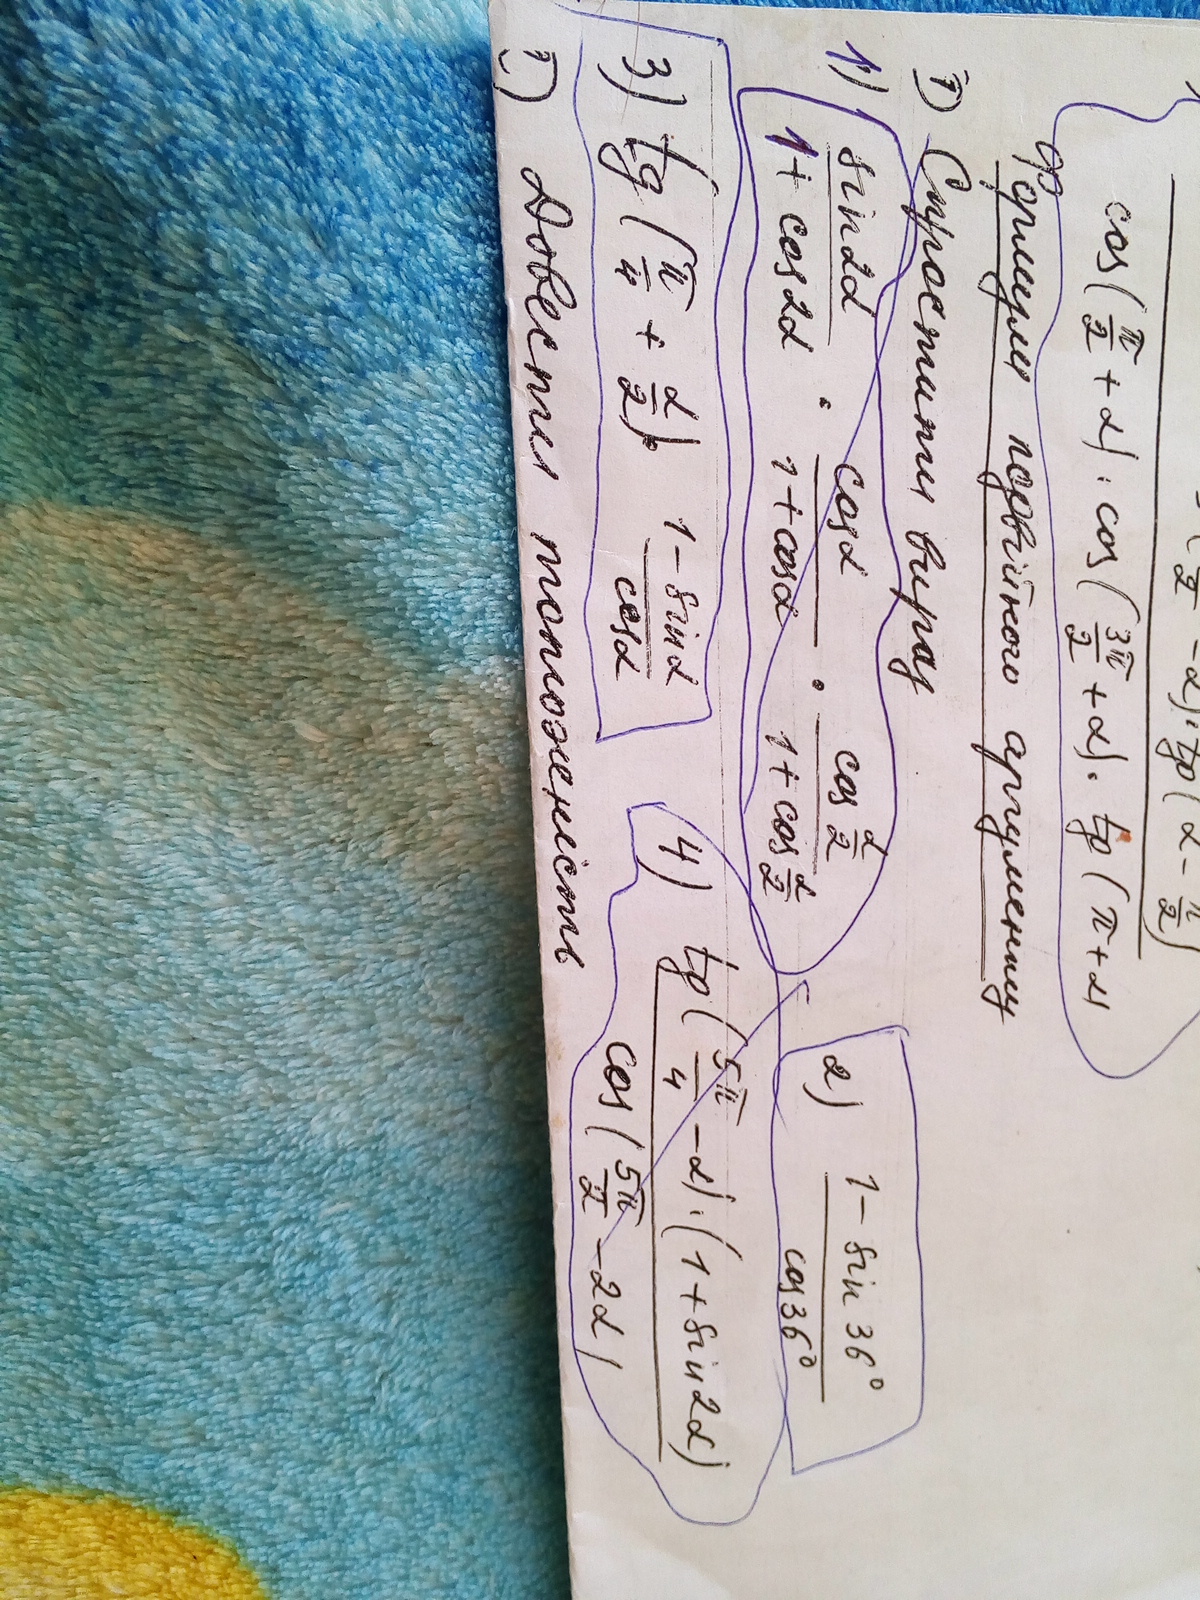 (π/2 - α) · tg(α - π/2)
cos(π/2 + α) · cos(3π/2 + α) · tg(π + α)
Формули подвійного аргументу
1) Спростити вираз
1) sin2α/(1 + cos2α) · cosα/(1 + cosα) · cos α/2/(1 + cos α/2)
2) (1 - sin 36°)/cos 36°
3) tg(π/4 + α/2) · (1 - sinα)/cosα
4) tg(5π/4 - α) · (1 + sin2α)/cos(5π/2 - 2α)
Довести тотожність